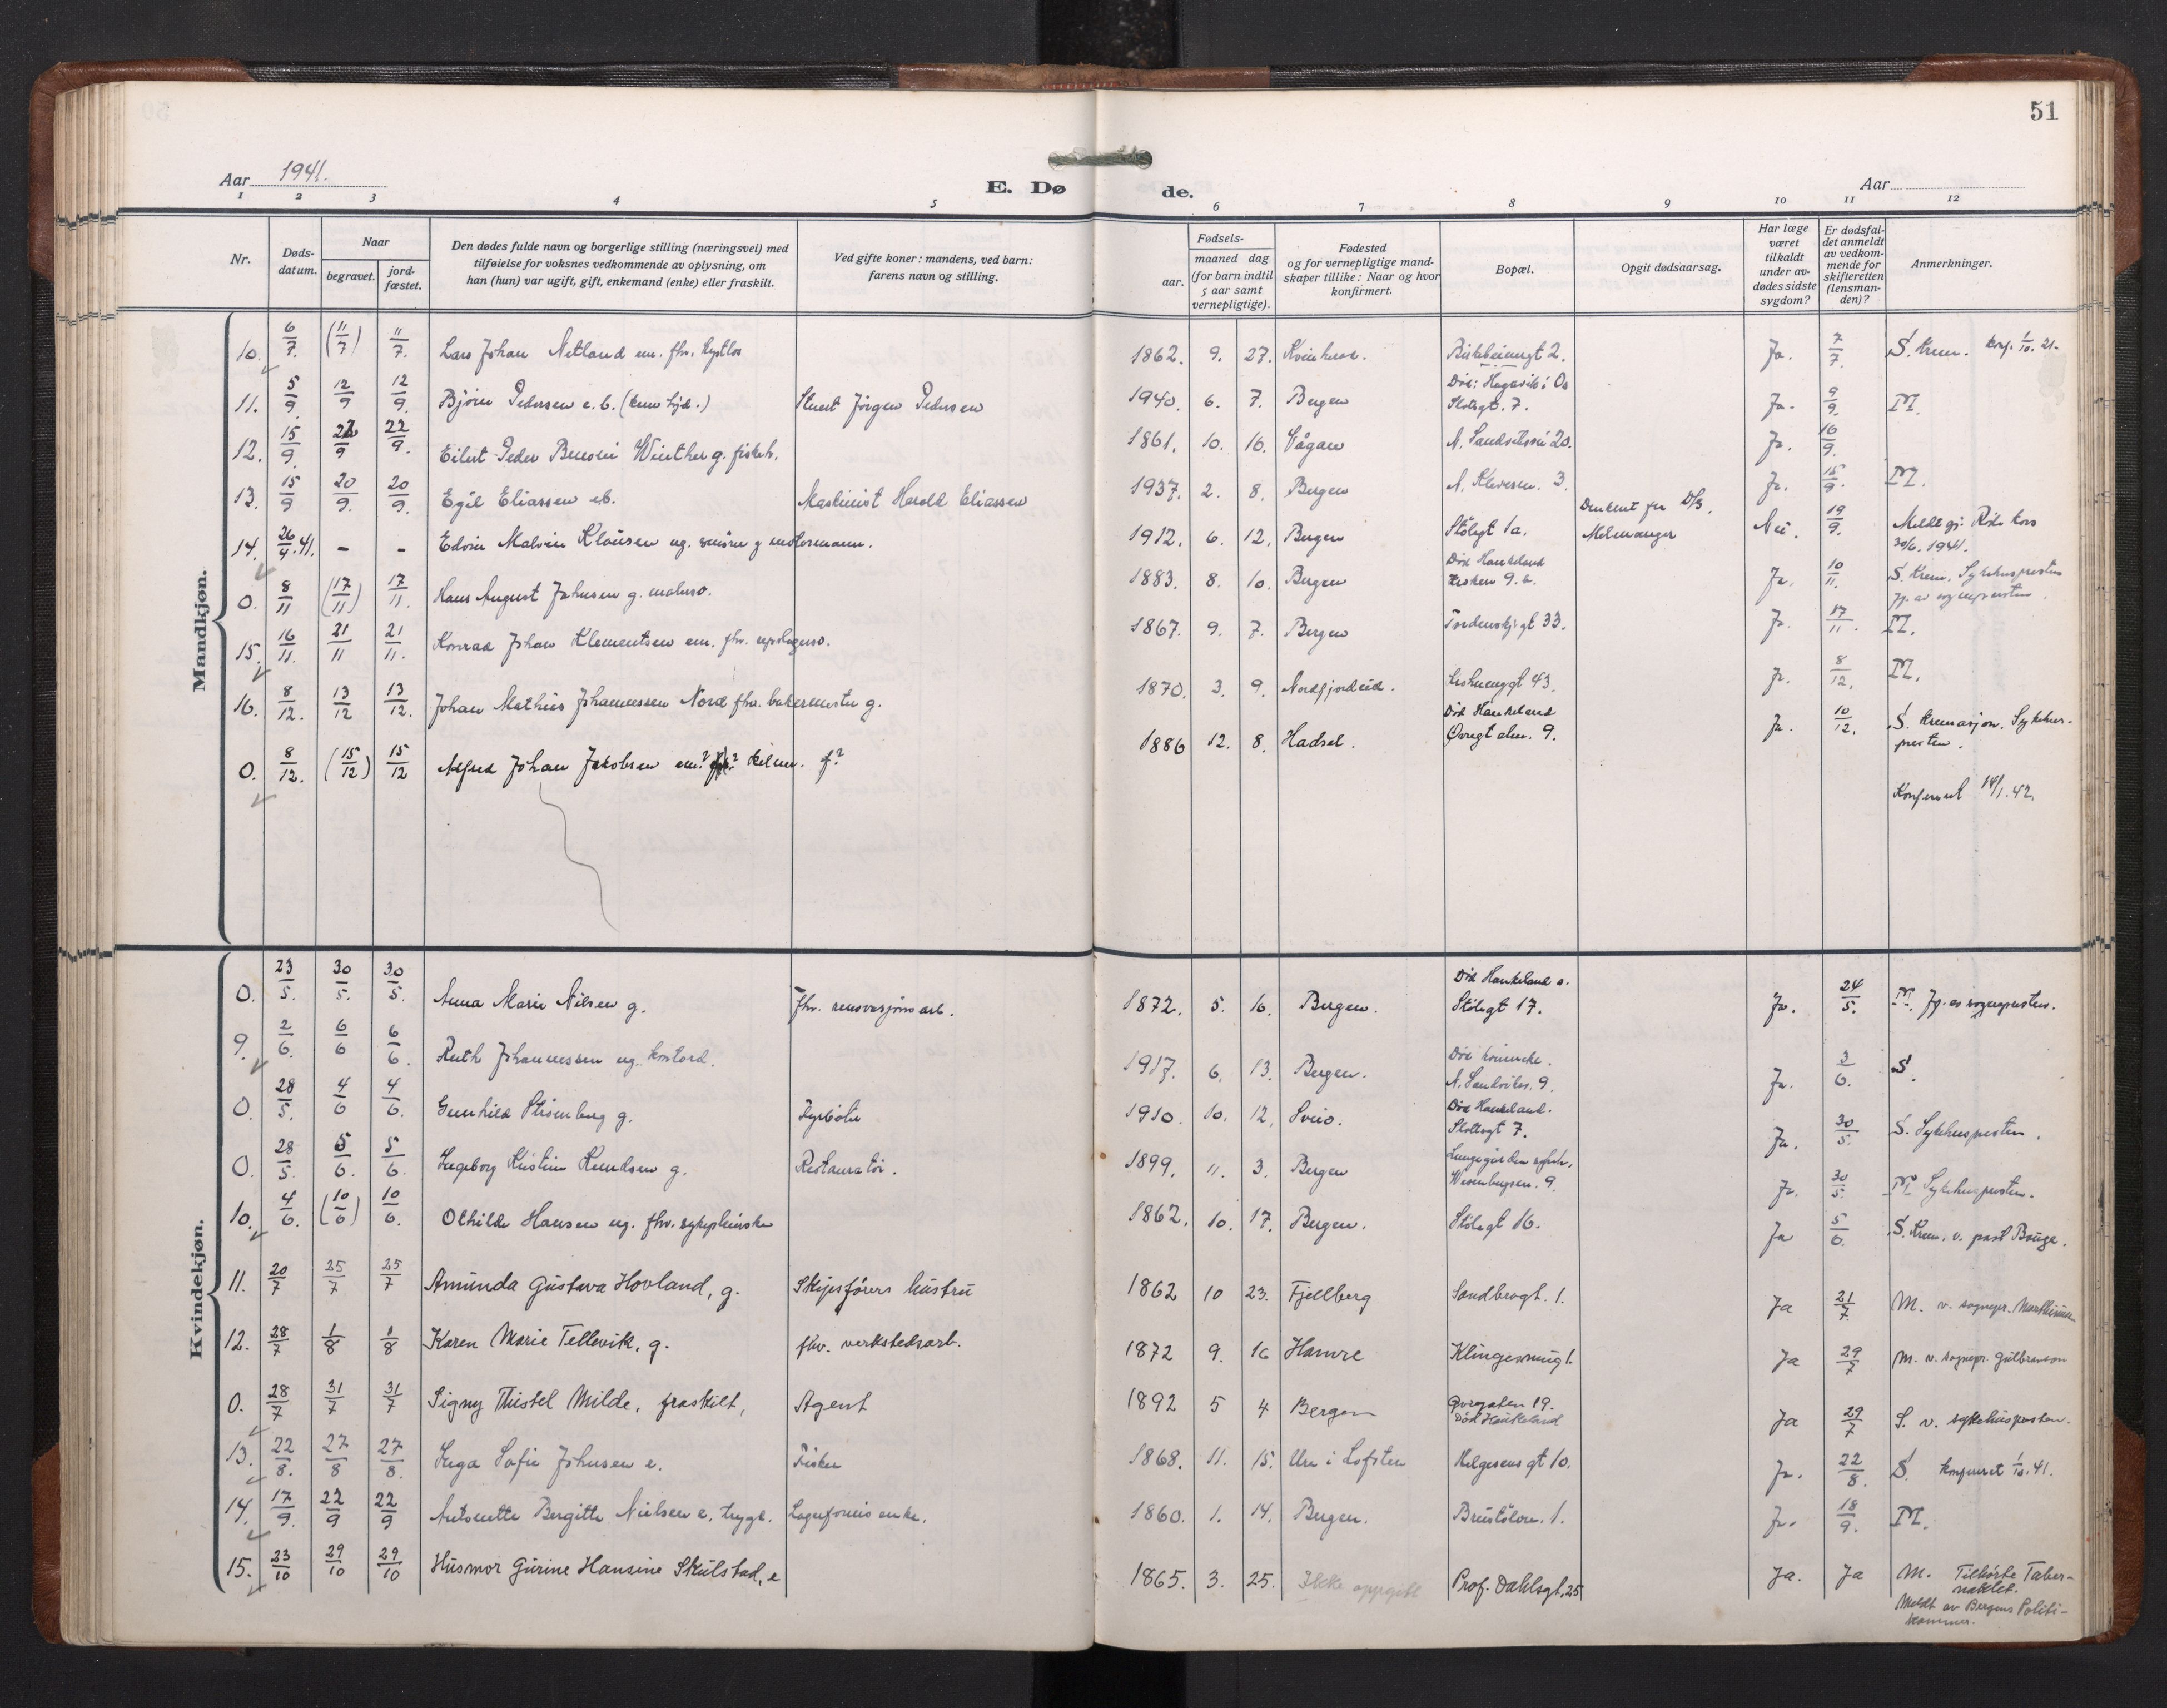 51
Aar 1941.
E. Dø de.
Aar
1 2 3 4 5 6 7 8 9 10 11 12
Nr.
Døds-
datum.
Naar
begravet.
jord-
fæstet.
Den dødes fulde navn og borgerlige stilling (næringsvei) med
tilføielse for voksnes vedkommende av oplysning, om
han (hun) var ugift, gift, enkemand (enke) eller fraskilt.
Ved gifte koner: mandens, ved barn:
farens navn og stilling.
Fødsels-
aar.
maaned dag
(for barn indtil
5 aar samt
vernepligtige).
Fødested
og for vernepligtige mand-
skaper tillike: Naar og hvor
konfirmert.
Bopæl.
Opgit dødsaarsag.
Har læge
været
tilkaldt
under av-
dødes sidste
sygdom?
Er dødsfal-
det anmeldt
av vedkom-
mende for
skifteretten
(lensman-
den)?
Anmerkninger.
Mandkjøn.
10. 6/7. (11/7) 11/7. Lars Johan Netland em. fhv. 1862. 9. 27. 2. Ja. 7/7. S. Krem. 1/10.
11. 5/9 12/9 12/9. Bjørn Pedersen e.b. Stuert Jørgen Pedersen 1940. 6. 7. Bergen Død: Hagavik i Os
Slotsgt. 7. Ja. 9/9. M.
12. 15/9. 22/9 22/9. Eilert Peder Winther g. fiskeh. 1861. 10. 16. Vågan N. Sandviksvei 20. Ja. 16/9.
13. 15/9 20/9. 20/9. Egil Eliassen eb. Maskinist Harold Eliassen 1937. 2. 8. Bergen 3. Ja. 15/9. M.
14. 26/4.41. - - Edvin Malvin Klausen ug. 1912. 6. 12. Bergen Stölegt 1a. D/S.
Nei. 19/9. Meldt gj. Röde Kors
30/6. 1941.
0. 8/11 (17/11) 17/11. Hans August Johnsen g. 1883. 8. 10. Bergen Död Haukeland
9. Ja. 10/11. S. Krem. Sykehuspresten
av sognepresten.
15. 16/11. 21/11 21/11. Konrad Johan Klementsen em. fhv. 1867. 9. 7. Bergen Tordenskj.gt 33. Ja. 17/11. M.
16. 8/12. 13/12 13/12. Johan Mathias Johannessen Nord fhv. bakermester g. 1870. 3. 9. Nordfjordeid. 43. Ja. 8/12. M.
0. 8/12. (15/12) 15/12 Alfred Johan Jakobsen em? g? 1886 12. 8. Hadsel. Död Haukeland
Øvregt alm. 9. Ja. 10/12. S. Kremasjon. Sykehus-
presten.
Konferert 14/1.42.
Kvindekjøn.
0. 23/5. 30/5. 30/5. Anna Marie Nilsen g. fhv. renovasjonsarb. 1872. 5. 16. Bergen. Död Haukeland s.
Stölegt 17. Ja. 24/5. M. Jf. av sognepresten.
9. 2/6. 6/6 6/6. Ruth Johannessen ug. kontord. 1917. 6. 13. Bergen. Död
N. Sandviksv. 9. Ja. 3/6. S.
0. 28/5. 4/6 4/6. Gunhild g. Fyrböter 1910. 10. 12. Sveio. Död Haukeland.
Slottsgt 7. Ja. 30/5. S. Sykehuspresten.
0. 28/5. 5/6. 5/6. Ingeborg Kristine Knudsen g. Restauratör. 1899. 11. 3. Bergen Lungegården sykeh.
Wesenbergsm. 9. Ja. 30/5. M Sykehuspresten.
10. 4/6. (10/6) 10/6. Othilde Hansen ug. fhv. sykepleierske 1862. 10. 17. Bergen. Stölegt 16. Ja 5/6. S. Krem. v. past Bauge.
11. 20/7 25/7 25/7 Amunda Gustava Hovland, g. Skipsförers hustru 1862 10 23. Fjellberg Sandbrogt. 1. Ja 21/7. M. v. sognepr.
12. 28/7 1/8 1/8 Karen Marie Tellevik, g. fhv. verkstedsarb. 1872 9. 16 Hamre Klingesmug 1. Ja 29/7 M. v. sognepr. Gulbranson
0. 28/7 31/7 31/7 Signy Thistel Milde, fraskilt, Agent 1892 5 4 Bergen Øvregaten 19.
Död Haukeland Ja 29/7 S. v. sykehuspresten.
13. 22/8. 27/8 27/8. Inga Sofie Johnsen e. Fisker 1868. 11. 15. Ure i Lofoten Helgesens gt 10. Ja. 22/8. S. konferert 1/10.41.
14. 17/9. 22/9 22/9 Antonette Bergitte Nielsen e. trygd. enke. 1860. 1. 14. Bergen. 1. Ja. 18/9. M.
15. 23/10 29/10 29/10 Husmor Gurine Hansine Skulstad, e 1865. 3. 25. Ikke oppgitt Prof. Dahlsgt. 25 Ja. Ja M. Tilhörte Taber-
naklet.
Meldt av Bergens Politi-
kammer.